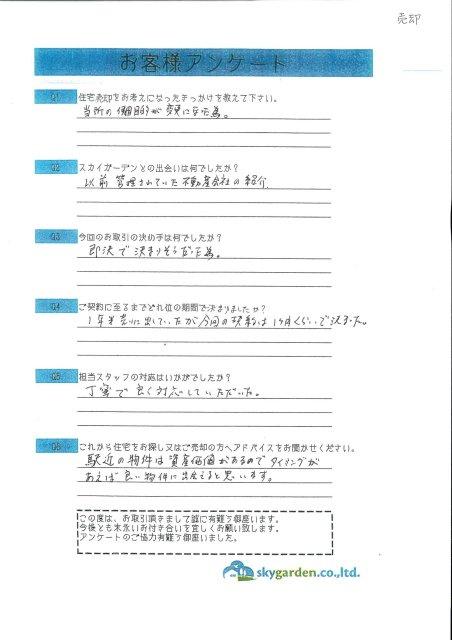 売却
お客様アンケート
Q1 住宅売却をお考えになったきっかけを教えて下さい。
当所の目的が変更になった為。
Q2 スカイガーデンとの出会いは何でしたか？
以前管理されていた不動産会社の紹介
Q3 今回のお取引の決め手は何でしたか？
即決で決まりそうだった為。
Q4 ご契約に至るまでどれ位の期間で決まりましたか？
1年半売りに出していたが今回の契約は1ヶ月くらいで決まった。
Q5 担当スタッフの対応はいかがでしたか？
丁寧で良く対応していただいた。
Q6 これから住宅をお探し又はご売却の方へアドバイスをお聞かせください。
駅近の物件は資産価値があるのでタイミングが
あえば良い物件に出会えると思います。
この度は、お取引頂きまして誠に有難う御座います。
今後とも末永いお付き合いを宜しくお願い致します。
アンケートのご協力有難う御座いました。
skygarden.co.,ltd.